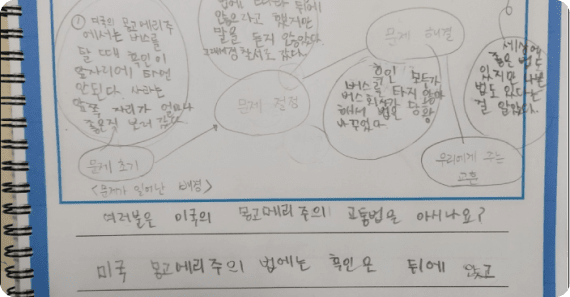 ① 미국의 몽고메리주
에서는 버스를
탈 때 흑인이
앞자리에 타면
안된다. 사라는
앞쪽 자리가 얼마나
좋은지 보러 갔다.
문제 초기
<문제가 일어난 배경>
앉으라고 했지만
말을 듣지 않았다.
그래서 경찰서도 갔다.
문제 절정
문제 해결
흑인 모두가
버스를 타지 않아
버스 회사가 당황
해서 법을
바꾸었다
세상에
좋은 법도
있지만 나쁜
법도 있다는
걸 알았다.
우리에게 주는
교훈
여러분은 미국의 몽고메리주의 교통법을 아시나요?
미국 몽고메리주의 법에는 흑인은 뒤에 앉고